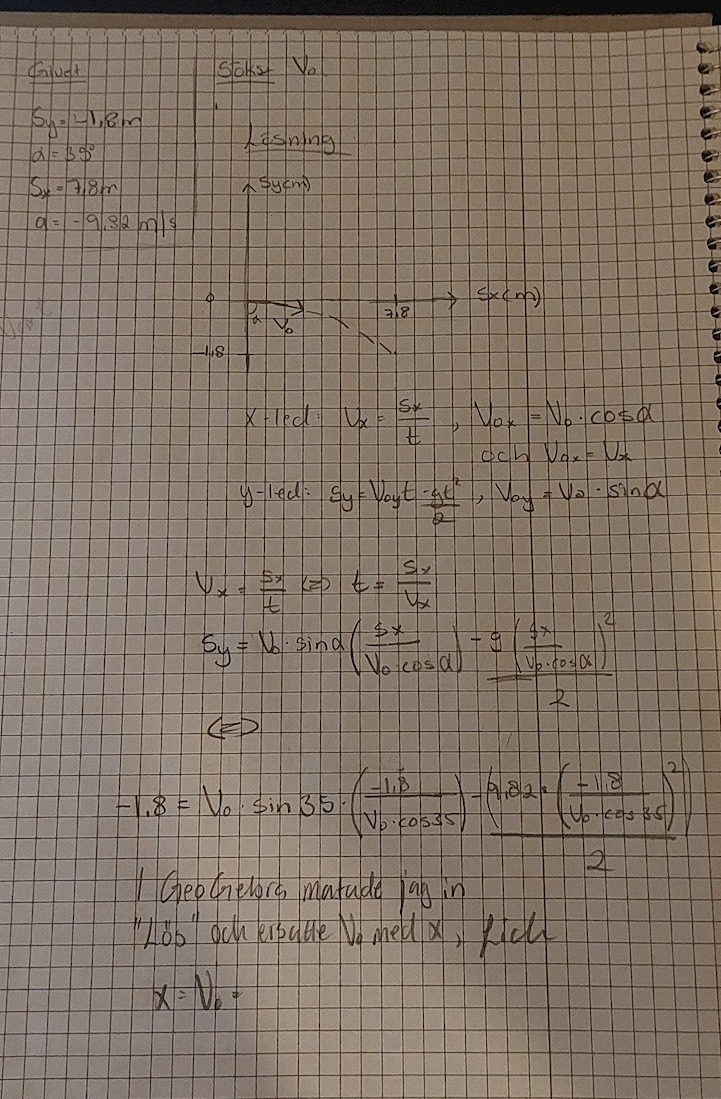 Givet
Sökst V₀
Sy = -1,8m
α = 35°
Sx = 7,8m
a = -9,82 m/s
Lösning
Sy(m)
0
Sx(m)
7,8
α
V₀
-1,8
x-led: Vx = Sx/t , V₀x = V₀ · cosα
och V₀x = Vx
y-led: Sy = V₀yt - gt²/2 , V₀y = V₀ · sinα
Vx = Sx/t ⇔ t = Sx/Vx
Sy = V₀ · sinα (Sx/(V₀·cosα)) - g (Sx/(V₀·cosα))²/2
⇔
-1.8 = V₀ · sin35 · (-1.8/(V₀·cos35)) - (9.82 · (-1.8/(V₀·cos35))²/2)
I GeoGebra matade jag in
"Lös" och ersatte V₀ med x, fick
x = V₀ =